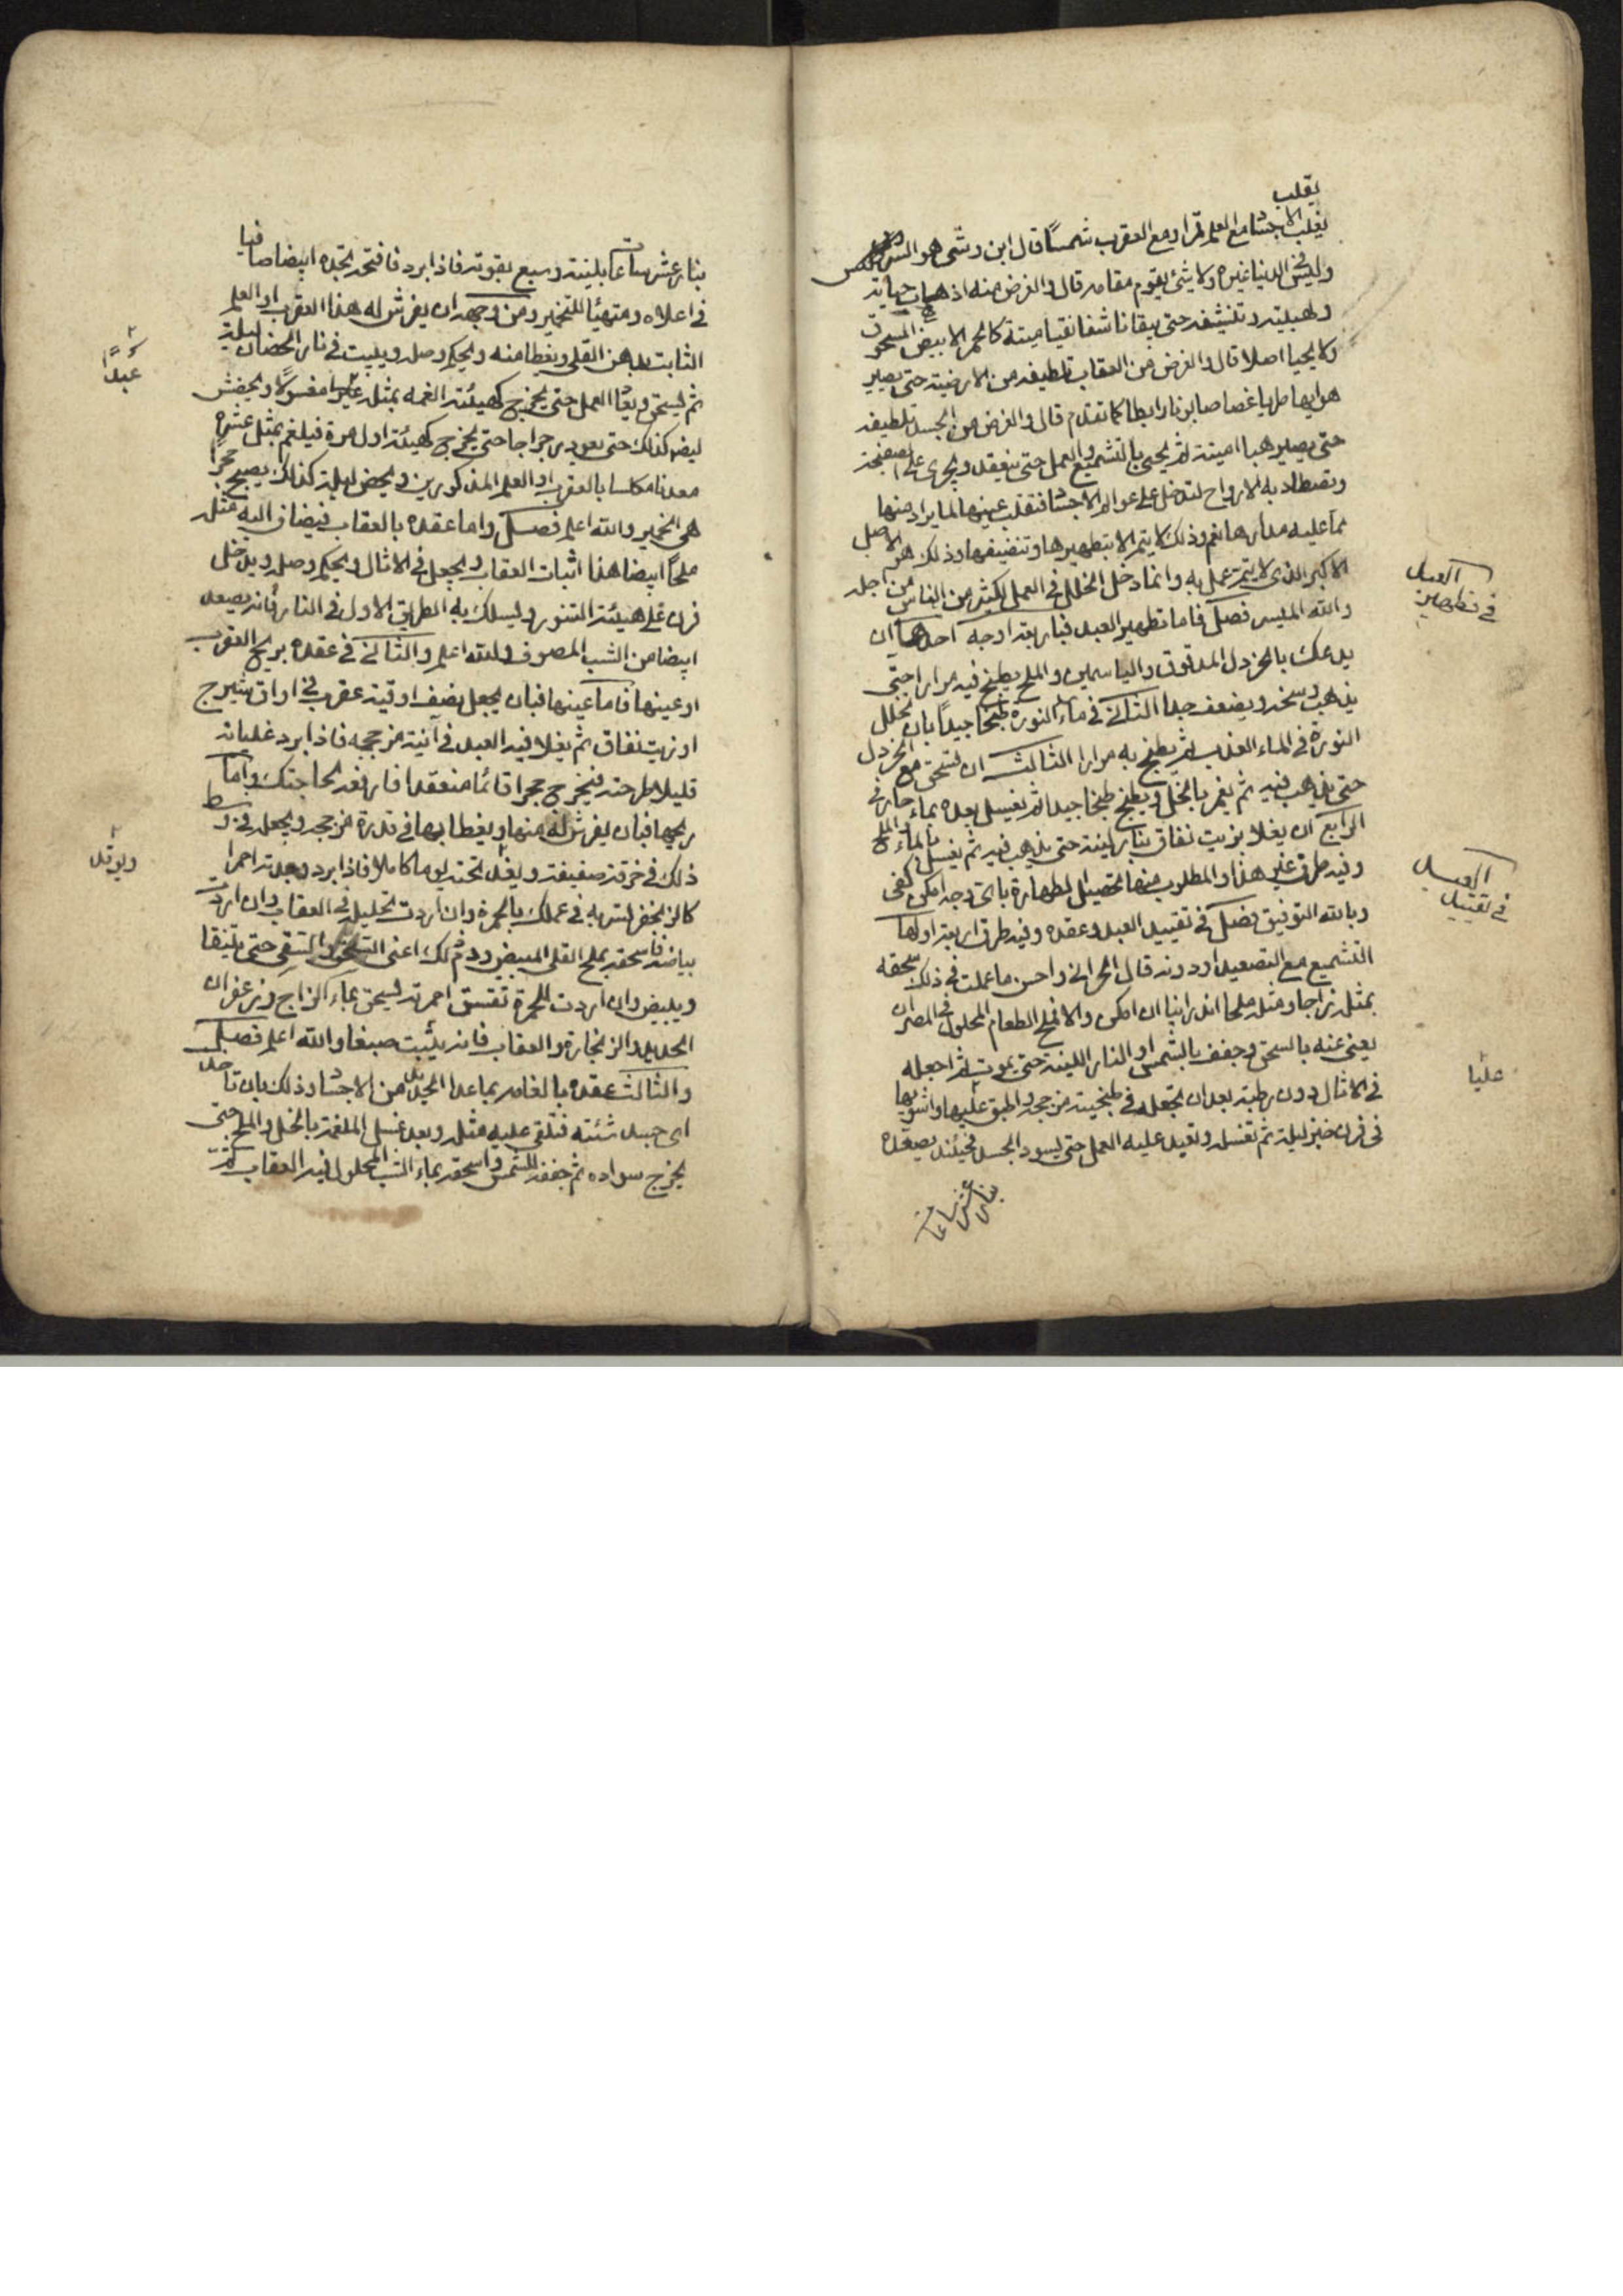 يقلب
يقلب الاجساد مع العلم قمرا ومع العقرب شمسًا قال ابن وشى هو السر
وليس في الدنيا غيره ولا شئ يقوم مقامه قال والغرض منه اذهاب حياته
ولهبيته وتنشيفه حتى يبقا ناشفا نقيا ميتة كالحجر الابيض المسحوق
ولا يحيا اصلا قال والغرض من العقاب تلطيفه من الارضية حتى يصير
هوايها طيا غصاصا بن نار ابطا كما تقدم قال والغرض من الجسد تلطيفه
حتى يصير هبا اميتة ثم يحيى بالتشميع والعمل حتى ينعقد ويجرى على الصفيحة
وتصطاد به الارواح لتدخل على عوالم الاجساد فتقلب عينها لما يراد منها
مما عليه مدارها نعم وذلك لا يتم الا بتطهيرها وتنضيفها وذلك هو الاصل
الاكبر الذى لا يتم عمل به وانما دخل الخلل في العمل لكثير من الناس من اجله
والله الميسر فصل فاما تطهير العبد فباربعة اوجه احدها ان
يدعك بالخردل المدقوق والياسمين والملح يطبخ فيه مرارا حتى
يذهب وسخه ويضعف جدا الثاني في ماء النورة طبخا جيداً بان تحلل
النورة في الماء العذب ثم يطبخ به مرارا الثالث ان تسحق مع الخردل
حتى يذهب فيه ثم يغمر بالخل ويطبخ طبخا جيدا ثم يغسل بعده بماء حار
الرابع ان يغلا بزيت نفاق بنار لينة حتى يذهب فيه ثم يغسل بالماء والملح
وفيه طرق غير هذا والمطلوب منها تحصيل الطهارة باى وجه امكن كفى
وبالله التوفيق فصل في تقييد العبد وعقده وفيه طرق اربعة اولها
التشميع مع التصعيد او دونه قال الحرانى واحسن ما عملت في ذلك سحقه
بمثله زاجا ومثله ملحا اندرانيا ان امكن والا فملح الطعام المحلول في المصران
يعنى عنه بالسحق وجفف بالشمس او النار اللينة حتى يموت ثم اجعله
في الاثال دون رطبة بعد ان تجعله في طبخية من حجر واطبق عليها واشويها
في فرن خبز ليلة ثم تغسله وتعيد عليه العمل حتى يسود الجسد فحينئذ يصعده
بنار عشر ساعات
الوصل
في تطهير
الوصل
في تقييد
عليا
بنار عشر ساعات بلينة وسبع بقوية فاذا برد فافتحه تجده ابيضا صافيا
في اعلاه ومتهيئا للتخمير ومن وجهه ان يفرش له هذا العقرب او العلم
الثابت بدهن القلى ويغطا منه ويحكم وصله ويبيت في نار الحضان ليلة
ثم يسحق ويعاد العمل حتى يخرج كهيئة الغمه بمثله عبدا مغسولا ويحضن
ايضا كذلك حتى يعود رجراجا حتى يخرج كهيئة اول مرة فيلغم بمثل عشره
معدنا مكلسا بالعقرب او العلم المذكورين ويحضن ليلة كذلك يصبح حجرا
هى الخمير والله اعلم فصل واما عقده بالعقاب فيضاف اليه مثله
ملحًا ايضا هذا اثبات العقاب ويجعل في الاثال ويحكم وصله ويدخل
فرن على هيئة التنور وليسلك به الطريق الاول في النار فانه يصعد
ابيضا من الشب المصوف والله اعلم والثاني في عقده بريح العقرب
او عينها فاما عينها فبان يجعل نصف اوقية عقرب في اواق شيرج
او زيت نفاق ثم يغلا فيه العبد في آنية من حجر فاذا برد غليانه
قليلا طرحته فيخرج حجرا قائما منعقدا فارفعه لحاجتك واما
ريحها فبان يفرش له منها ويغطا بها في قدرة من حجر ويجعله في وسط
ذلك في خرقة صفيفة ويقد تحته يوما كاملا فاذا برد وجدته احمرا
كالزنجفر لتربه في عملك بالحمرة وان اردت تحليله في العقاب وان اردت
بياضه فاسحقه بملح القلى المبيض ودم لك اعنى السحق والتسقى حتى يتنقا
ويبيض وان اردت للحمرة تفسق احمرته ليسحق بماء الزاج وزعفران
الحديد والزنجارة والعقاب فانه يثبت صبغا والله اعلم فصل
والثالث عقده بالغامر بما عدا الحديد من الاجساد وذلك بان تاخذ
اى جسد شئته فتلقى عليه مثله وبعد غسل الملغمة بالخل والملح حتى
يخرج سواده ثم جففه للشمس واسحقه بماء الشب المحلول فيه العقاب
عبدًا
ويوقد